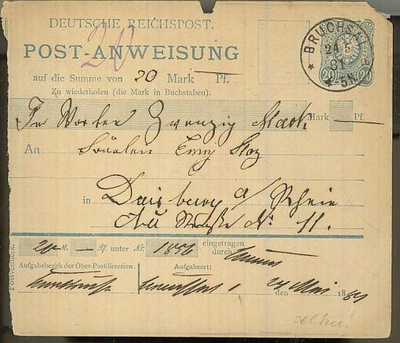 DEUTSCHE REICHSPOST.
20
POST-ANWEISUNG
auf die Summe von 20 Mark — Pf.
Zu wiederholen (die Mark in Buchstaben).
In Worten Zwanzig Mark Mark — Pf.
An Fräulein Emy
in Duisburg a/Rhein
No. 11.
20 M. — Pf. unter Nr. 1856 eingetragen durch:
Aufgabebezirk der Ober-Postdirection. Aufgabeort:
Bruchsal 1 den 24 Mai 1881
BRUCHSAL
24 5
81
5N
20 20